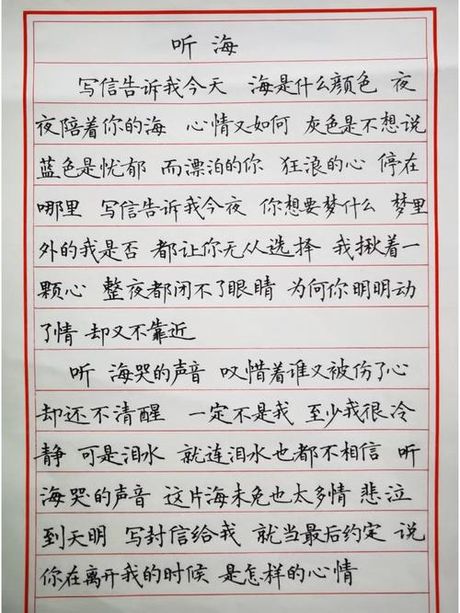 听海
写信告诉我今天 海是什么颜色 夜
夜陪着你的海 心情又如何 灰色是不想说
蓝色是忧郁 而漂泊的你 狂浪的心 停在
哪里 写信告诉我今夜 你想要梦什么 梦里
外的我是否 都让你无从选择 我揪着一
颗心 整夜都闭不了眼睛 为何你明明动
了情 却又不靠近
听 海哭的声音 叹惜着谁又被伤了心
却还不清醒 一定不是我 至少我很冷
静 可是泪水 就连泪水也都不相信 听
海哭的声音 这片海未免也太多情 悲泣
到天明 写封信给我 就当最后约定 说
你在离开我的时候 是怎样的心情